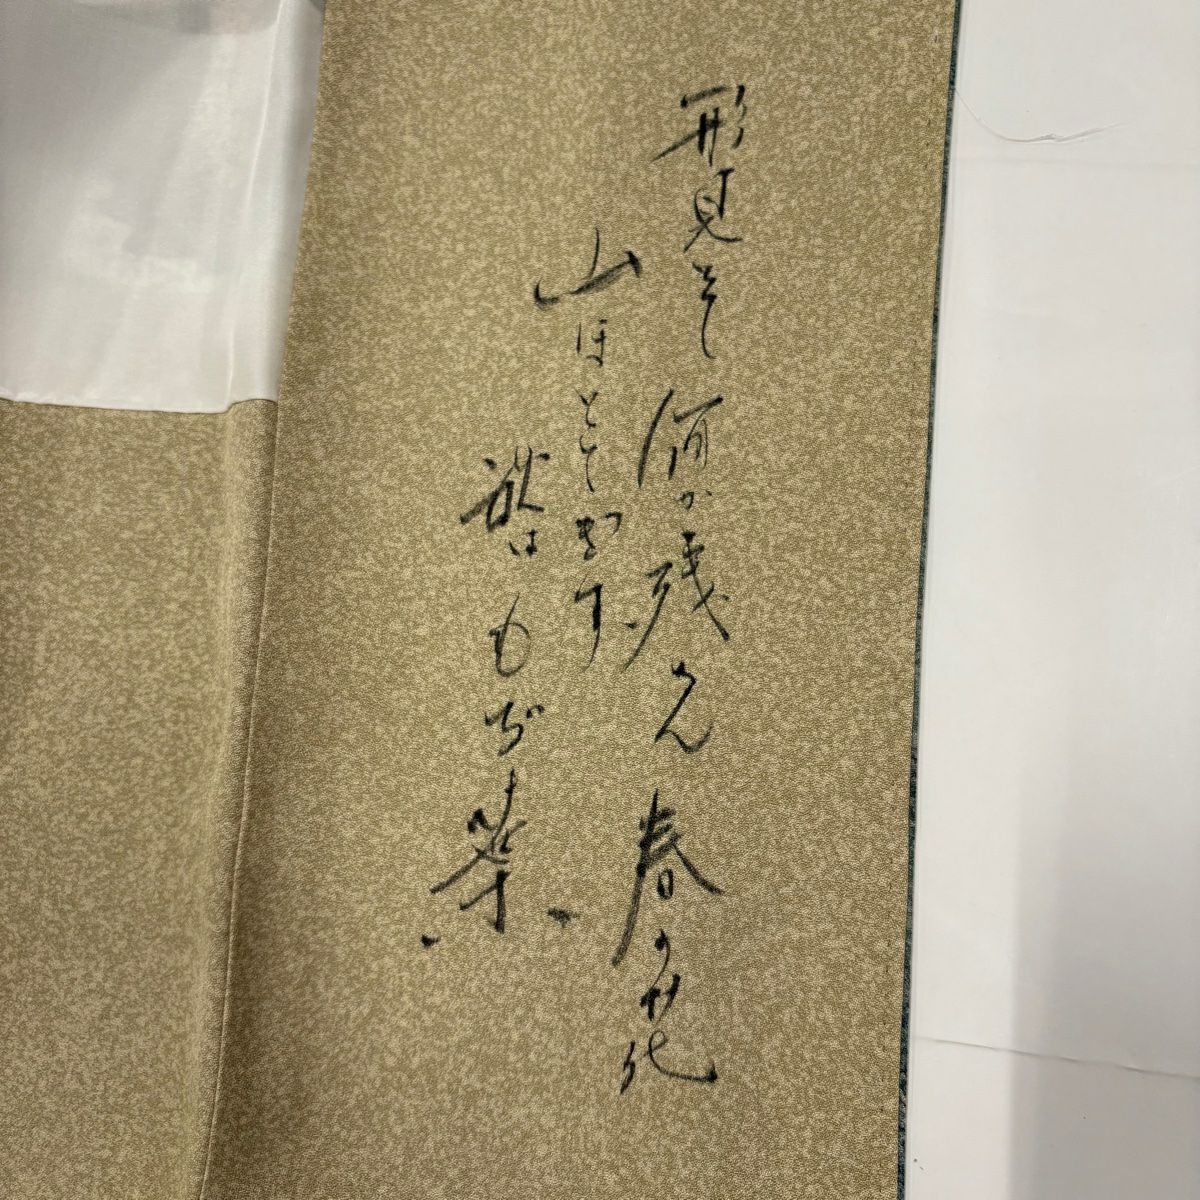 形見とて何か残さん春の花
山ほととぎす
秋はもみぢ葉